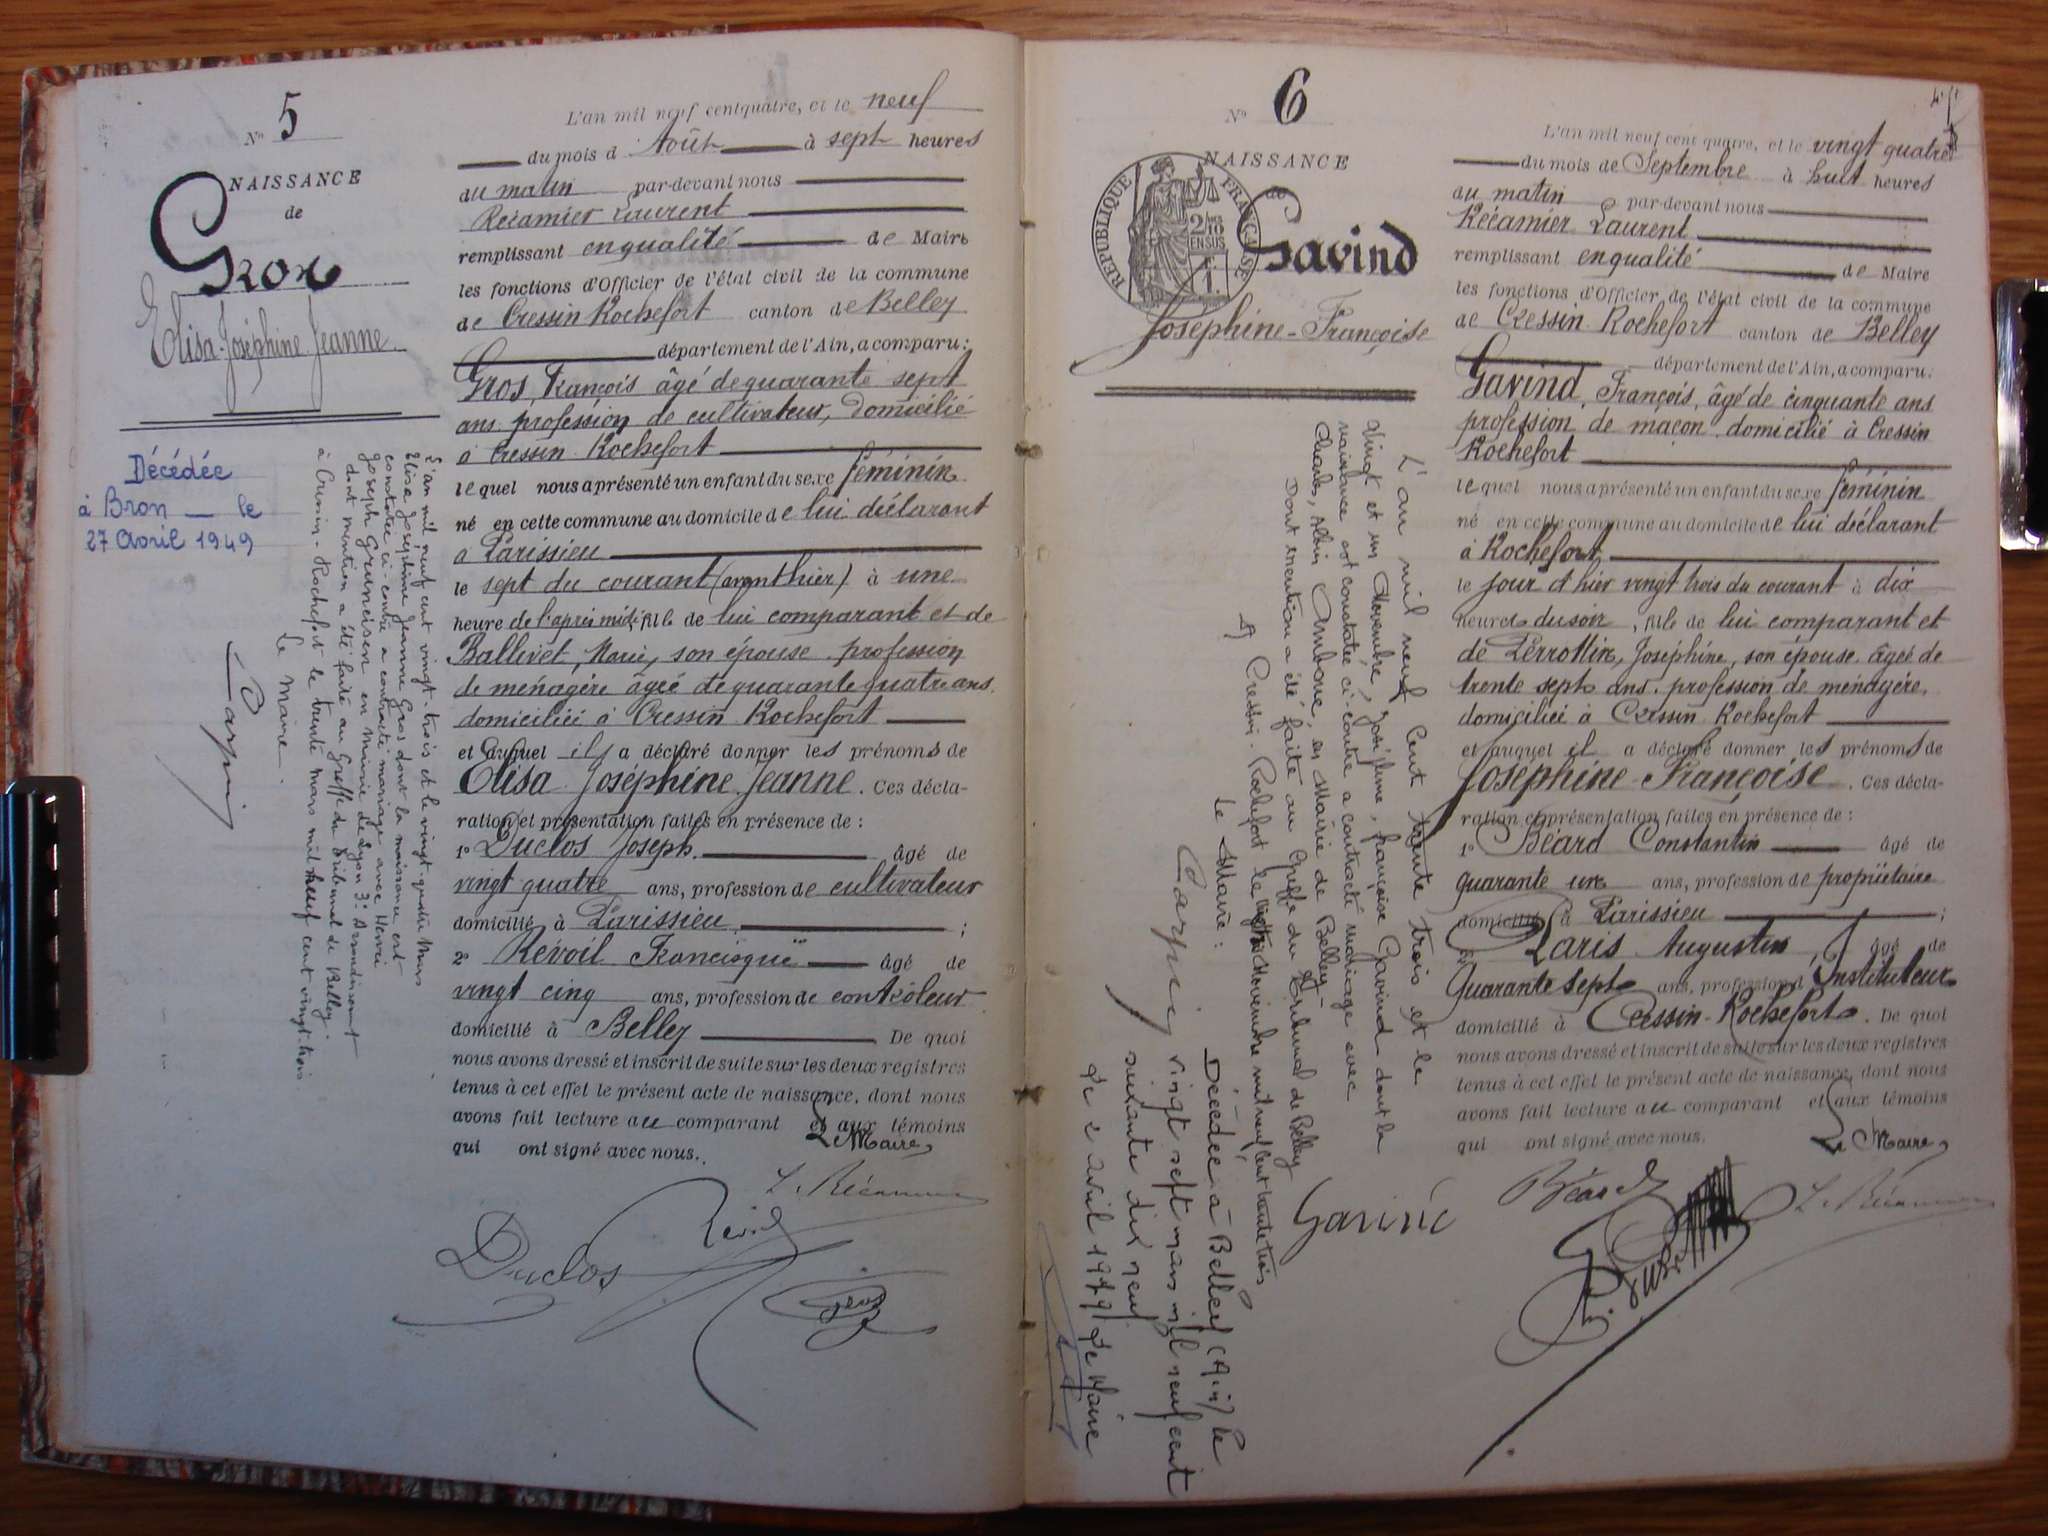 N° 5
NAISSANCE
de
Gros
Elisa Joséphine Jeanne
Décédée
à Bron le
27 Avril 1949
L'an mil neuf cent vingt-trois et le vingt-quatre Mars
Elisa Joséphine Jeanne Gros dont la naissance est
constatée ci-contre a contracté mariage avec Henri
Joseph Gruneisen en Mairie de Lyon 3e Arrondissement
dont mention a été faite au Greffe du Tribunal de Belley.
à Cressin-Rochefort le trente mars mil neuf cent vingt-trois
Le Maire.
L'an mil neuf cent quatre, et le neuf
du mois d'Août à sept heures
du matin par-devant nous
Récamier Laurent
remplissant en qualité de Maire
les fonctions d'Officier de l'état civil de la commune
de Cressin Rochefort canton de Belley
département de l'Ain, a comparu:
Gros, François âgé de quarante sept
ans profession de cultivateur, domicilié
à Cressin Rochefort
lequel nous a présenté un enfant du sexe féminin
né en cette commune au domicile de lui déclarant
à Parissieu
le sept du courant (avant hier) à une
heure de l'après midi, fille de lui comparant et de
Ballivet, Marie, son épouse profession
de ménagère âgée de quarante quatre ans
domiciliée à Cressin Rochefort
et auquel il a déclaré donner les prénoms de
Elisa Joséphine Jeanne. Ces décla-
ration et présentation faites en présence de :
1° Duclos Joseph. âgé de
vingt quatre ans, profession de cultivateur
domicilié à Parissieu ;
2° Révoil Francisque âgé de
vingt cinq ans, profession de contrôleur
domicilié à Belley De quoi
nous avons dressé et inscrit de suite sur les deux registres
tenus à cet effet le présent acte de naissance, dont nous
avons fait lecture au comparant et aux témoins
qui ont signé avec nous.
Le Maire,
L. Récamier
Duclos Révoil
Gros
N° 6
NAISSANCE
de
REPUBLIQUE FRANÇAISE
2/10 EN SUS
Gavind
Joséphine-Françoise
L'an mil neuf cent trente trois et le
vingt et un Novembre, Joséphine, françoise Gavind dont la
naissance est constatée ci-contre a contracté mariage avec
Charles, Albin, en Mairie de Belley
Dont mention a été faite au Greffe du Tribunal de Belley
A Cressin-Rochefort le Novembre mil neuf cent trente trois
Le Maire :
Décédée à Belley (Ain) le
vingt sept mars mil neuf cent
soixante dix neuf.
Le 2 avril 1979 Le Maire
L'an mil neuf cent quatre, et le vingt quatre
du mois de Septembre à huit heures
du matin par-devant nous
Récamier Laurent
remplissant en qualité de Maire
les fonctions d'Officier de l'état civil de la commune
de Cressin Rochefort canton de Belley
département de l'Ain, a comparu:
Gavind, François, âgé de cinquante ans
profession de maçon domicilié à Cressin
Rochefort
lequel nous a présenté un enfant du sexe féminin
né en cette commune au domicile de lui déclarant
à Rochefort
le jour d'hier vingt trois du courant à dix
heures du soir, fille de lui comparant et
de Perrottin, Joséphine, son épouse âgée de
trente sept ans profession de ménagère,
domiciliée à Cressin Rochefort
et auquel il a déclaré donner les prénoms de
Joséphine-Françoise. Ces décla-
ration et présentation faites en présence de :
1° Béard Constantin âgé de
quarante un ans, profession de propriétaire
domicilié à Parissieu ;
2° Paris Augustin, âgé de
Quarante sept ans, profession d'Instituteur
domicilié à Cressin-Rochefort. De quoi
nous avons dressé et inscrit de suite sur les deux registres
tenus à cet effet le présent acte de naissance, dont nous
avons fait lecture au comparant et aux témoins
qui ont signé avec nous.
Le Maire,
Béard
L. Récamier
Gavind